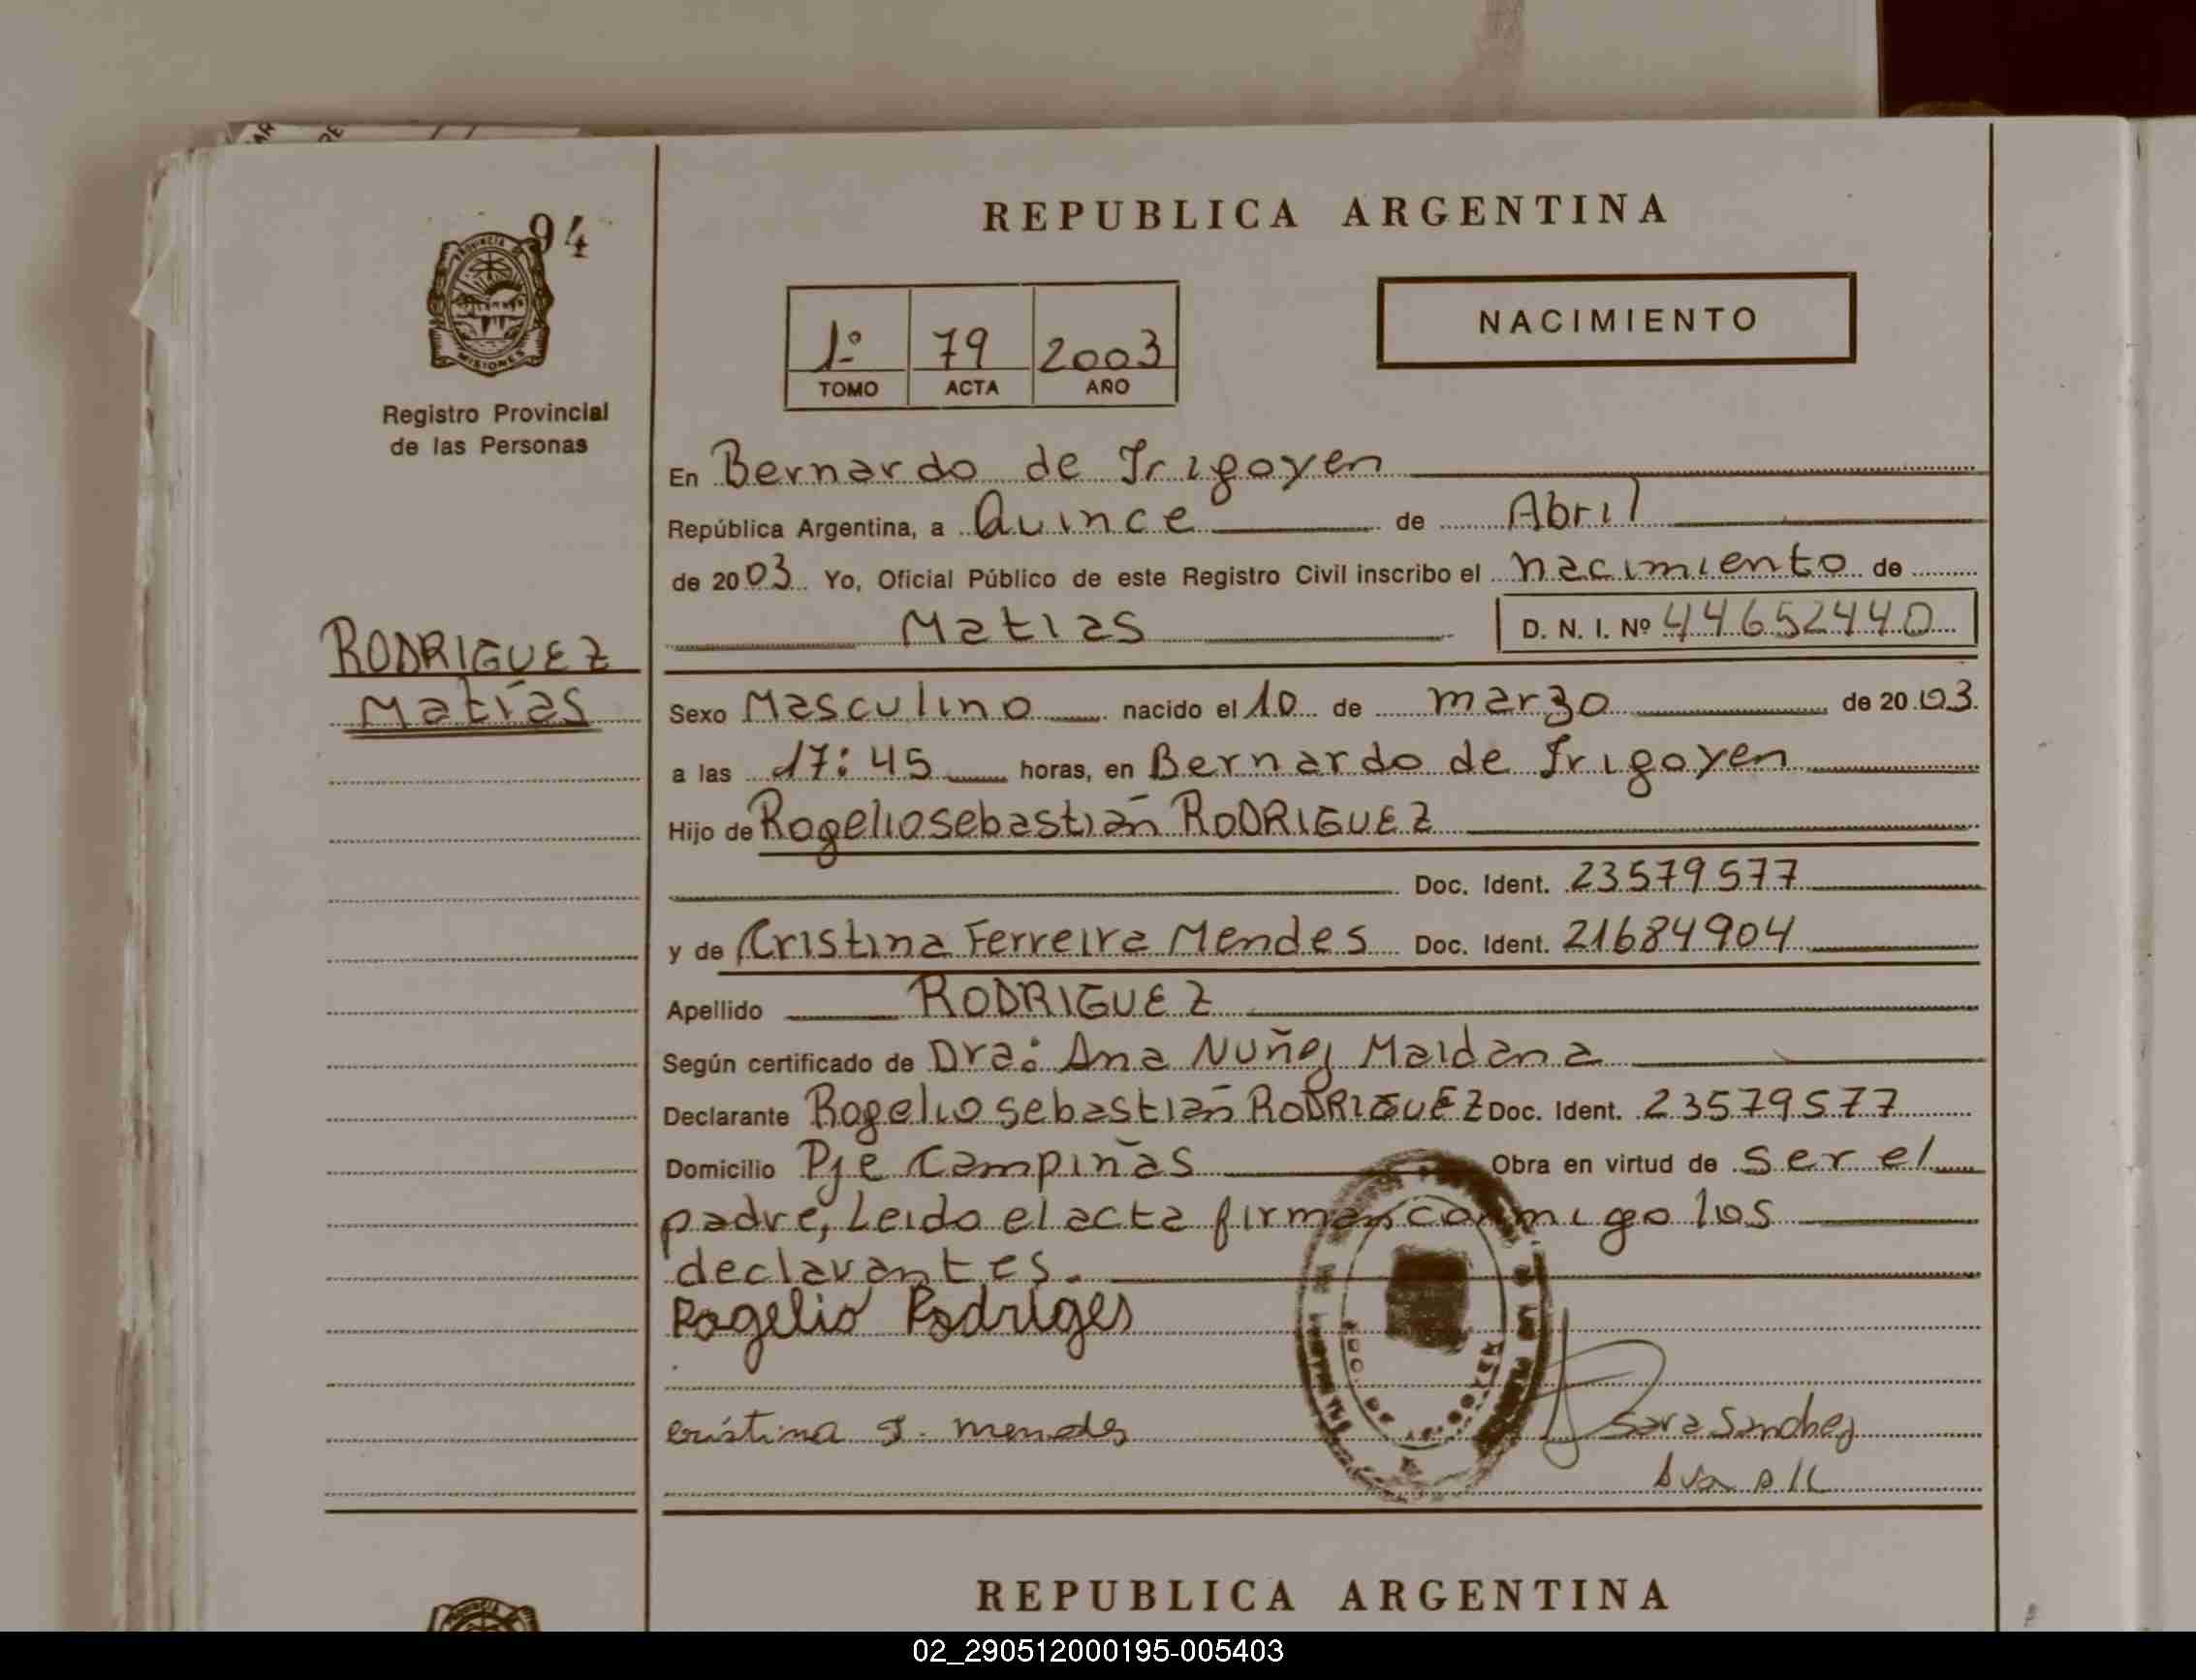 94
PROVINCIA DE
MISIONES
Registro Provincial
de las Personas
RODRIGUEZ
Matías
REPUBLICA ARGENTINA
1º 79 2003
TOMO ACTA AÑO
NACIMIENTO
En Bernardo de Irigoyen
República Argentina, a Quince de Abril
de 2003 Yo, Oficial Público de este Registro Civil inscribo el nacimiento de
Matias D. N. I. Nº 44652440
Sexo Masculino nacido el 10 de marzo de 2003
a las 17:45 horas, en Bernardo de Irigoyen
Hijo de Rogelio sebastián RODRIGUEZ
Doc. Ident. 23579577
y de Cristina Ferreira Mendes Doc. Ident. 21684904
Apellido RODRIGUEZ
Según certificado de Dra: Ana Nuñez Maldana
Declarante Rogelio sebastián RODRIGUEZ Doc. Ident. 23579577
Domicilio Pje Campiñas Obra en virtud de ser el
padre, Leido el acta firman conmigo los
declarantes.
Rogelio Rodriges
cristina F. mendes
Sara Sanchez
REPUBLICA ARGENTINA
02_290512000195-005403